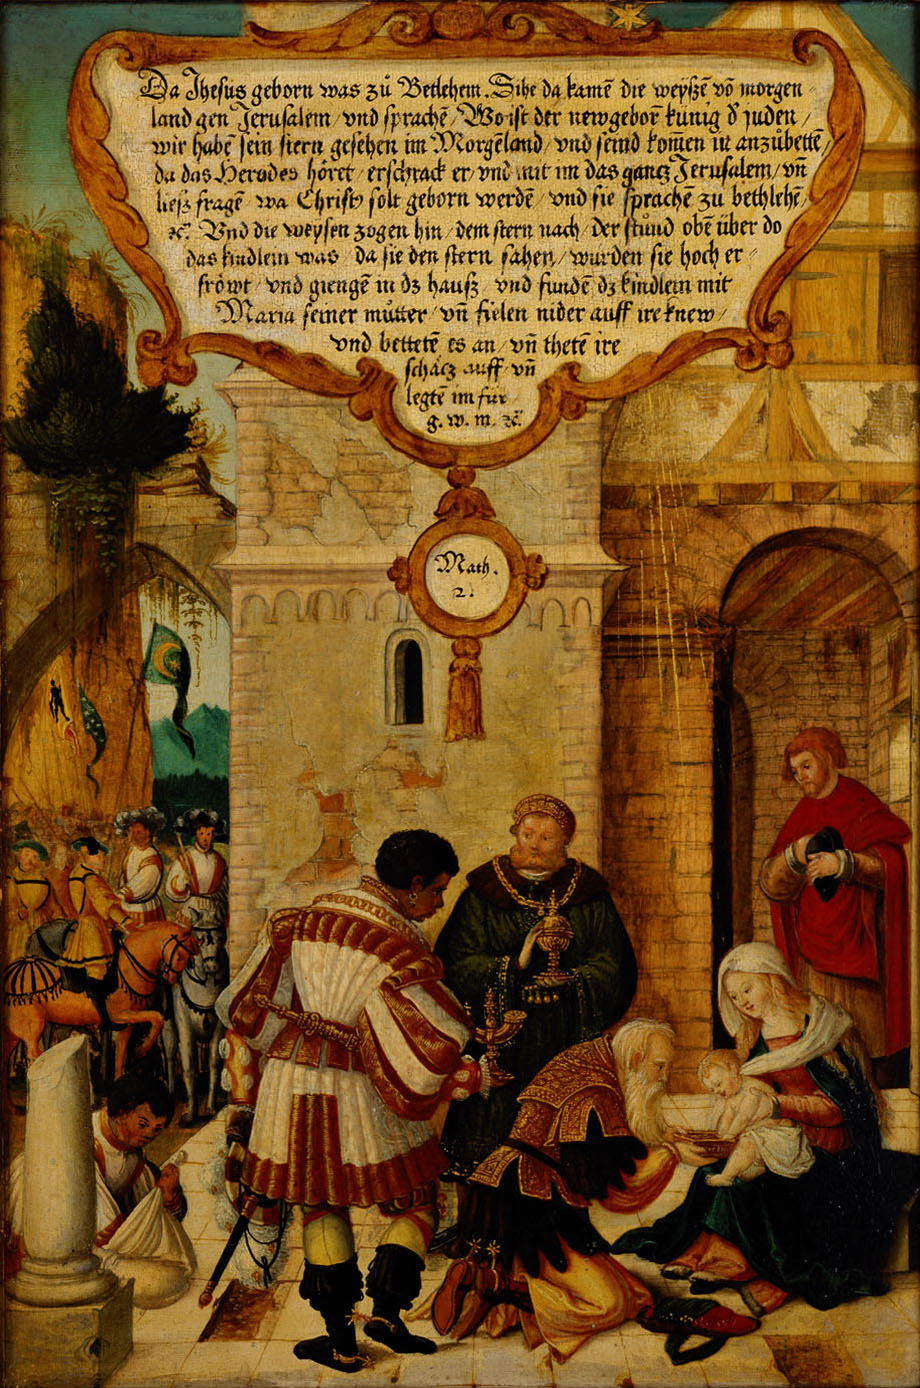 Da Jhesus geborn was zů Betlehem. Sihe da kamē die weyszē vō morgen⸗
land gen Jerusalem / vnd sprachē / Wo ist der newgeborn̄ künig d̕ juden /
wir habē sein stern gesehen im Morgēland / vnd seind kom̄en in anzůbettē
da das Herodes höret / erschrack er / vnd mit im das gantz Jerusalem / vn̄
liesz fragē wa Christ⁹ solt geborn werdē / vnd sie sprachē zu bethlehē /
ꝛc̄. Vnd die weysen zogen hin / dem stern nach / der stůnd obē über do
das kindlein was da sie den stern sahen / wurden sie hoch er⸗
fröwt / vnd giengē in dz hausz vnd fundē dz kindlein mit
Maria seiner můtter / vn̄ fielen nider auff ire knew /
vnd bettetē es an / vn̄ thetē ire
schätz auff / vn̄
legtē im für
g. w. m. ꝛc̄.
Math.
2.